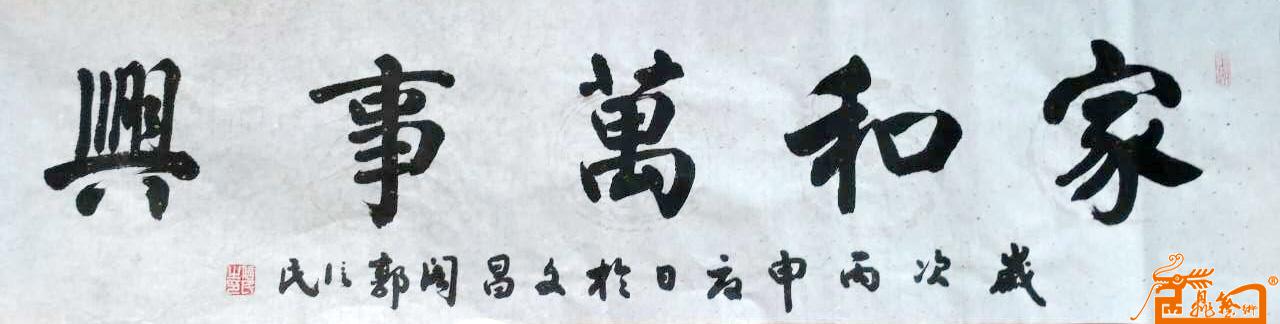 家和萬事興
歲次丙申夏日於文昌閣郭信民